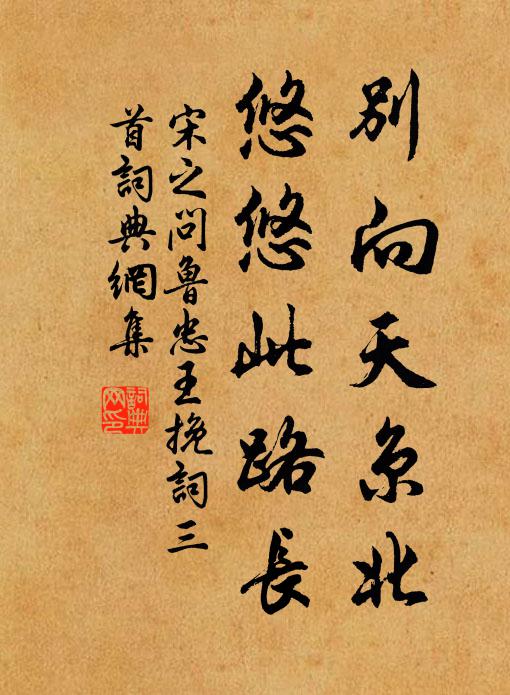 別向天京北
悠悠此路長
宋之問魯忠王挽詞三
首詞典網集
詞典網印